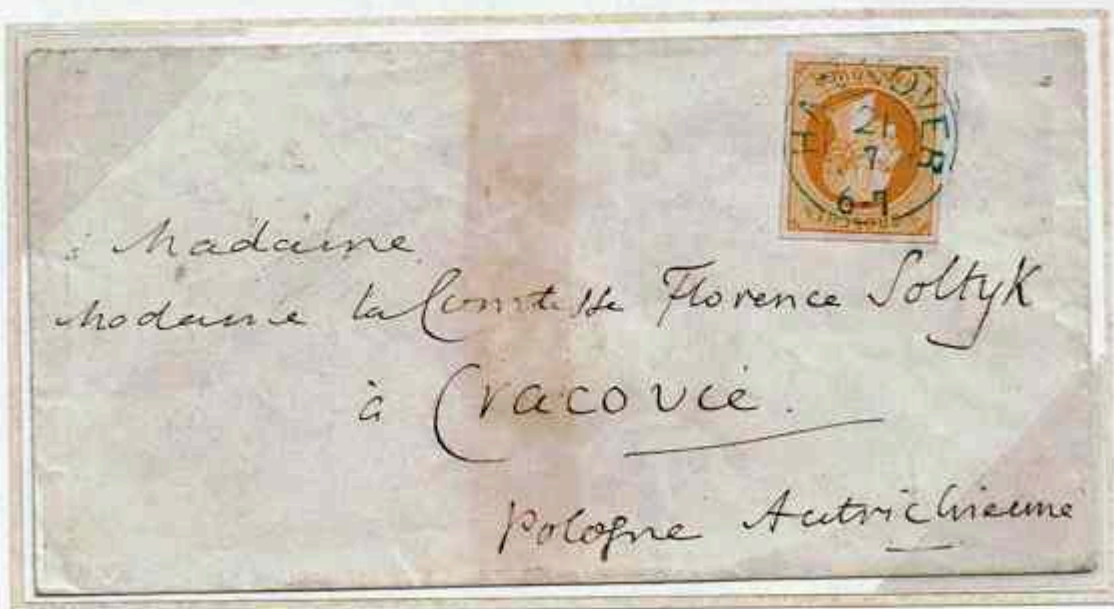 HANNOVER
21
7
6-7
Madame
Madame la Comtesse Florence Soltyk
à Cracovie.
Pologne Autrichienne